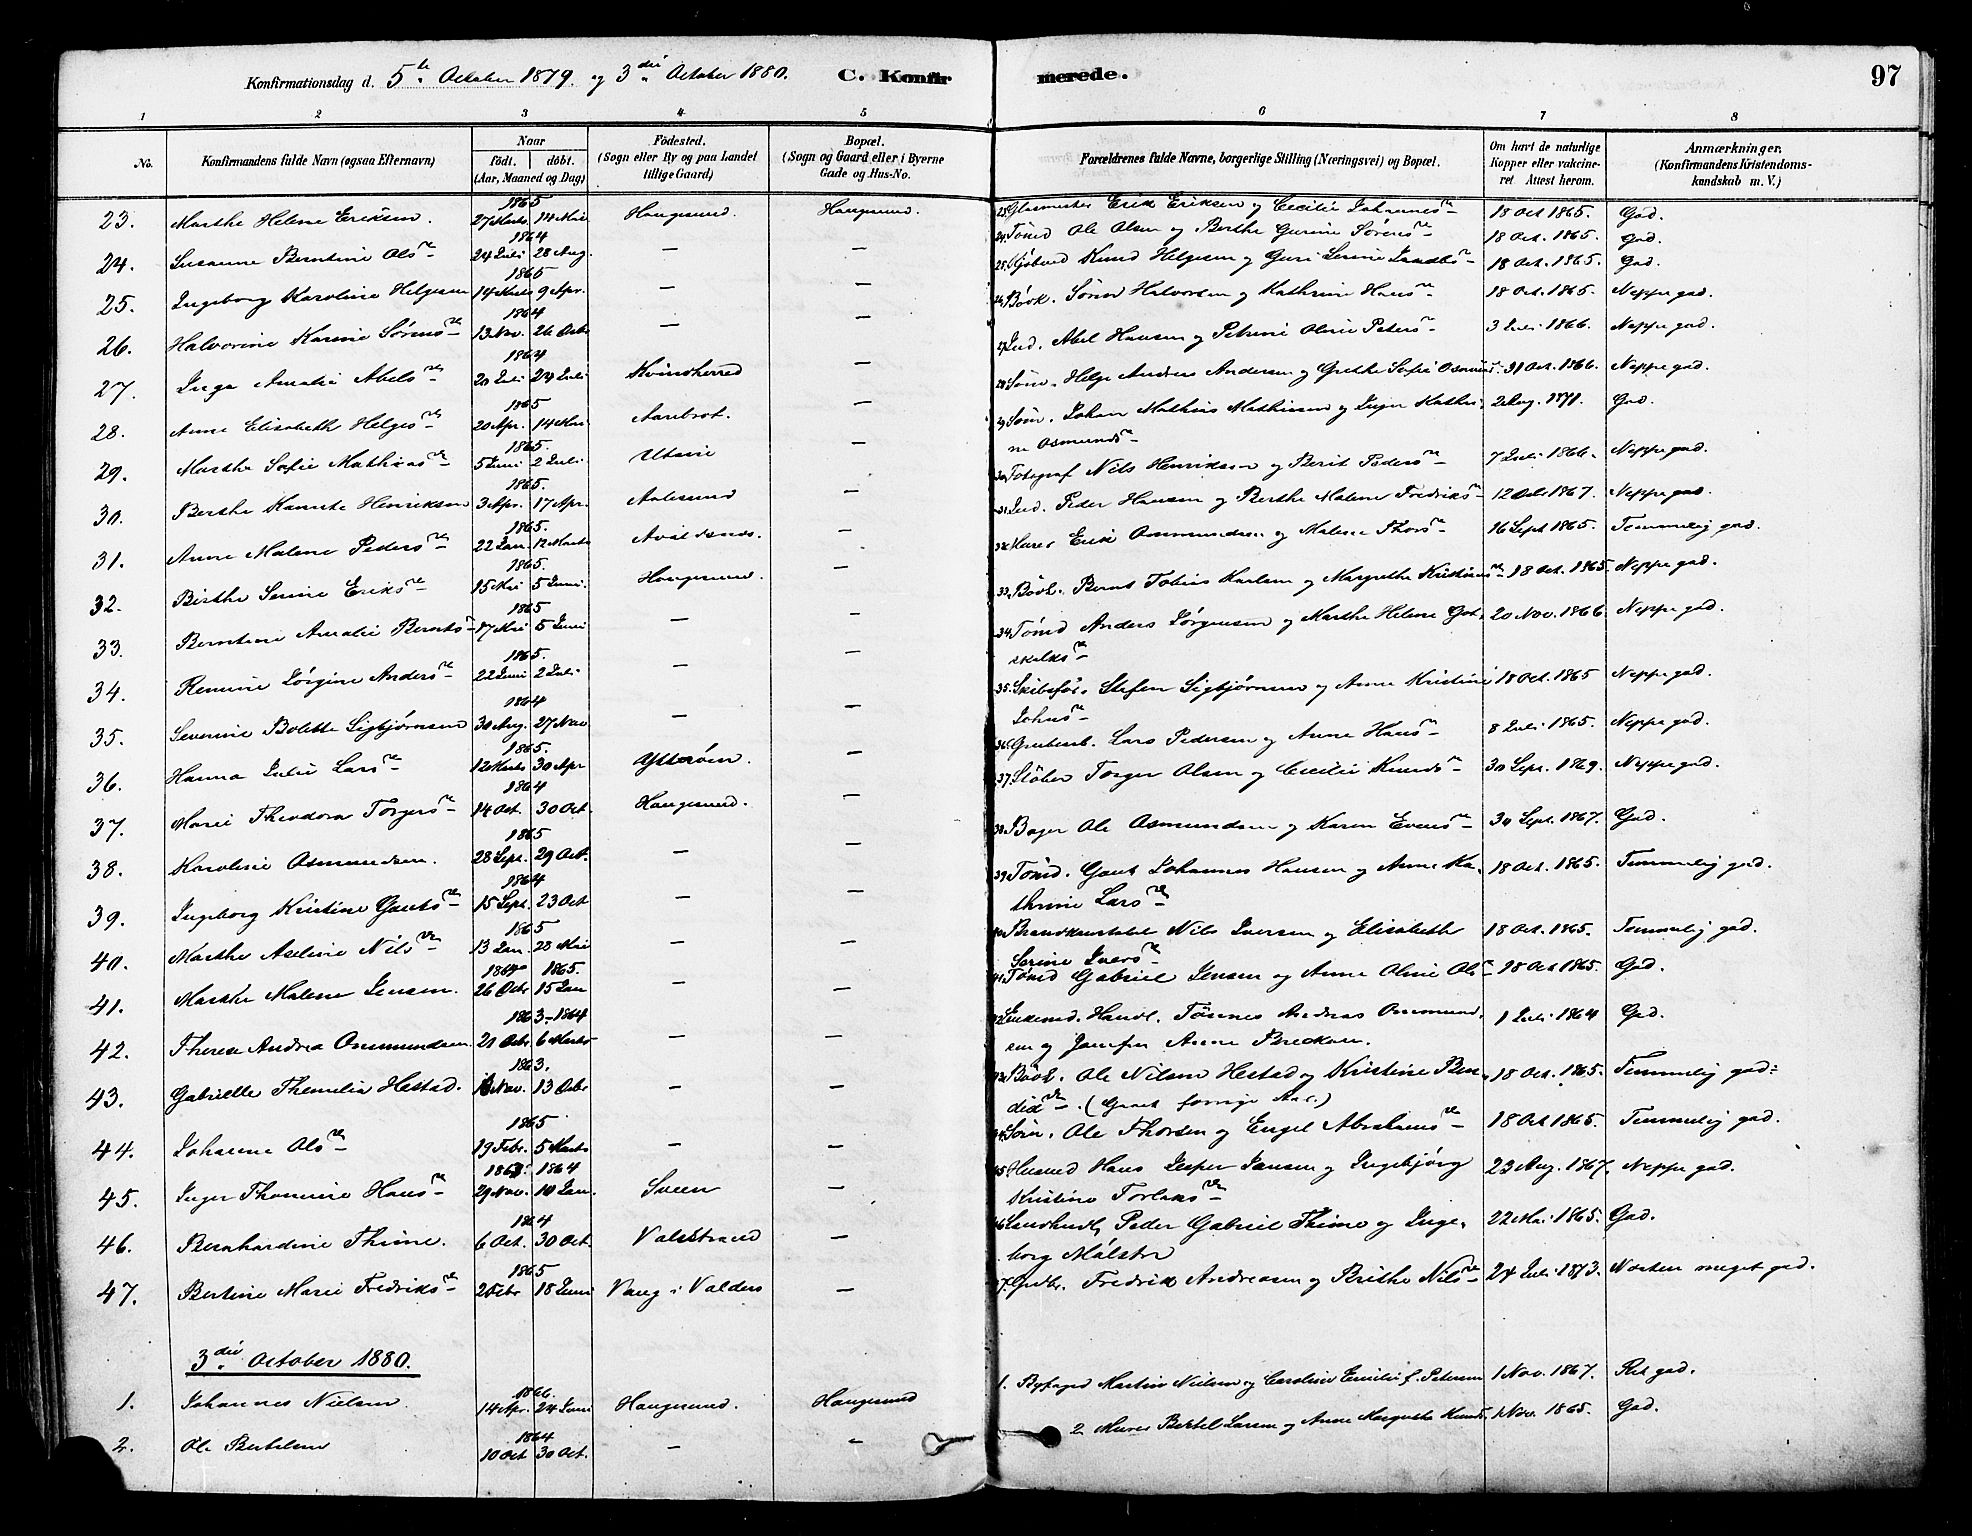 Konfirmationsdag d. 5te October 1879. og 3die October 1880. C. Konfirmerede. 97
1 2 3 4 5 6 7 8
No. Konfirmandens fulde Navn (ogsaa Efternavn) Naar født. døbt. (Aar, Maaned og Dag) Fødested. (Sogn eller By og paa Landet tillige Gaard) Bopæl. (Sogn og Gaard eller i Byerne Gade og Hus-No. Forældrenes fulde Navne, borgerlige Stilling (Næringsvei) og Bopæl. Om havt de naturlige Kopper eller vakcineret Attest herom. Anmærkninger. (Konfirmandens Kristendomskundskab m. V.)
23. Marthe Helene Eriksen. 1865 27 Marts 14 Mai Haugesund. Haugesund. 23. Glasmester Erik Eriksen og Cecilie Johannesd. 18 Oct 1865. God.
24. Susanne Berntine Olsd. 1864 24 Juli 28 Aug. — — 24. Tømd Ole Olsen og Berthe Gurine Sørensd. 18 Oct. 1865. God.
25. Ingeborg Karoline Helgesen 1865 14 Marts 9 Apr. — — 25. Knud Helgesen og Guri Serine 18 Oct. 1865. God.
26. Halvorine Karine Sørensd. 1864 13 Nov. 26 Decbr — — 26. Bødk. Søren Halvorsen og Kathrine Hansd. 18 Oct. 1865. Neppe god.
27. Inga Amalie Abelsd. 1864 20 Juli 24 Juli Kvindherred — 27. Ind. Abel Hansen og Petrine Oline Petersd. 3 Juli 1866. Neppe god.
28. Anne Elisabeth Helgesd. 1865 20 Apr. 14 Mai — 28. Søm. Helge Andreas Andersen og Grethe Sofie Osmundsd. 31 Oct. 1866. Neppe god.
29. Marthe Sofie Mathiasd. 1865. 5 Juni 2 Juli Utsire — 29. Søm. Johan Mathias Mathiasen og Inger Kathrine Osmundsd. 2 Aug. 1871. God.
30. Berthe Hansete Henriksen 1865. 3 Apr. 17 Apr. Aalesund — 30. Fotograf Nils Henriksen og Berit Pedersd. 7 Juli 1866. Neppe god.
31. Anne Malene Pedersd. 1865. 22 Jan. 12 Marts Avaldsnes. — 31. Ind. Peder Hansen og Berthe Malene Fredriksd. 12 1867. Neppe god.
32. Birthe Serine Eriksd. 1865. 15 Mai 5 Juni. Haugesund. — 32. Murer Erik Osmundsen og Malene Thorsd. 16 Sept 1865. Temmelig god.
33. Berntine Amalie Berntsd. 1865 17 Mai 5 Juni — — 33. Bødk. Bernt Tobias Karlsen og Margrethe Kristinesd. 18 Oct. 1865. Neppe god.
34. Remine Jørgine Andersd. 1865. 22 Juni 2 Juli — — 34. Tømd Anders Jørgensen og Marthe Helene Gotskalksd. 20 Nov. 1866. Neppe god.
35. Severine Bolette Sigbjørnsen 1864 30 Aug. 27 Nov — — 35. Skibsfør. Stefen Sigbjørnsen og Anne Kristine Johnsd. 18 Oct. 1865 Neppe god.
36. Hanna Julie Larsd. 1865. 12 Marts 30 Apr Ytterøen. — 36. Grubearb. Lars Pedersen og Anne Hansd. 8 Juli 1865. Neppe god.
37. Marie Theodora Torgersd. 1864 14 Oct. 30 Oct. Haugesund. — 37. Støber Torger Olsen og Cecilie Knudsd. 30 Sept. 1869. Neppe god.
38. Karoline Osmundsen. 1865 28 Sept. 29 Oct. — — 38. Bager Ole Osmundsen og Karen Evensd. 30 Sept. 1867. God.
39. Ingeborg Kristine Gautsd. 1864 15 Sept. 23 Oct — — 39. Tømd. Gaut Johannes Hansen og Anne Kathrine Larsd. 18 Oct. 1865. Temmelig god.
40. Marthe Aseline Nilsd. 1865 13 Jan. 28 Mai — — 40. Brandkonstabel Nils Iversen og Elisabeth Serine Iversd. 18 Oct. 1865. Temmelig god.
41. Marthe Malene Jensen. 1864 1865. 26 Decbr 15 Jan — — 41. Tømd Gabriel Jensen og Anne Oline Olsd. 18 Oct 1865. God.
42. Therese Andrea Osmundsen. 1863–1864 21 Decbr 6 Marts — — 42. Handl. Tønnes Andreas Osmundsen og Jomfru Anne Bredesen. 1 Juli 1864 God.
43. Gabrielle Themelia Hestad. 1863. Nov. 13 Decbr — — 43. Bødk. Ole Nilsen Hestad og Kristine Bendiksd. (Gaaet forrige Aar.) 18 Oct. 1865. Temmelig god.
44. Johanne Olsd. 1865 19 Febr. 5 Marts — — 44. Søm. Ole Thorsen og Engel Abrahamsd. 18 Oct 1865. Temmelig god.
45. Inger Thomine Hansd. 1863. 1864 29 Nov. 10 Jan. Sveen — 45. Husmd Hans Jesper Jansen og Ingebjørg Kristine Torlaksd. 23 Aug. 1867. Neppe god.
46. Bernhardine Thime. 1864 6 Oct. 30 Oct. Valestrand — 46. Landhandl. Peder Gabriel Thime og Ingeborg Mølstre 22 Mai 1865. God.
47. Bertine Marie Fredriksd. 1865 2 Febr. 18 Juni Vang i Valders — 47. Gudbr. Fredrik Andreasen og Brithe Nilsd. 24 Juli 1873. Næsten meget god.
3die October 1880.
1. Johannes Nielsen. 1866. 14 Apr. 24 Juni Haugesund. Haugesund 1. Byfoged Martin Nielsen og Caroline Emilie f. Petersen 1 Nov. 1867. Ret god.
2. Ole Bertelsen 1864 10 Oct 30 Oct. — — 2 Murer Bertel Larsen og Anne Margrethe Knudsd. 1 Nov. 1865. God.